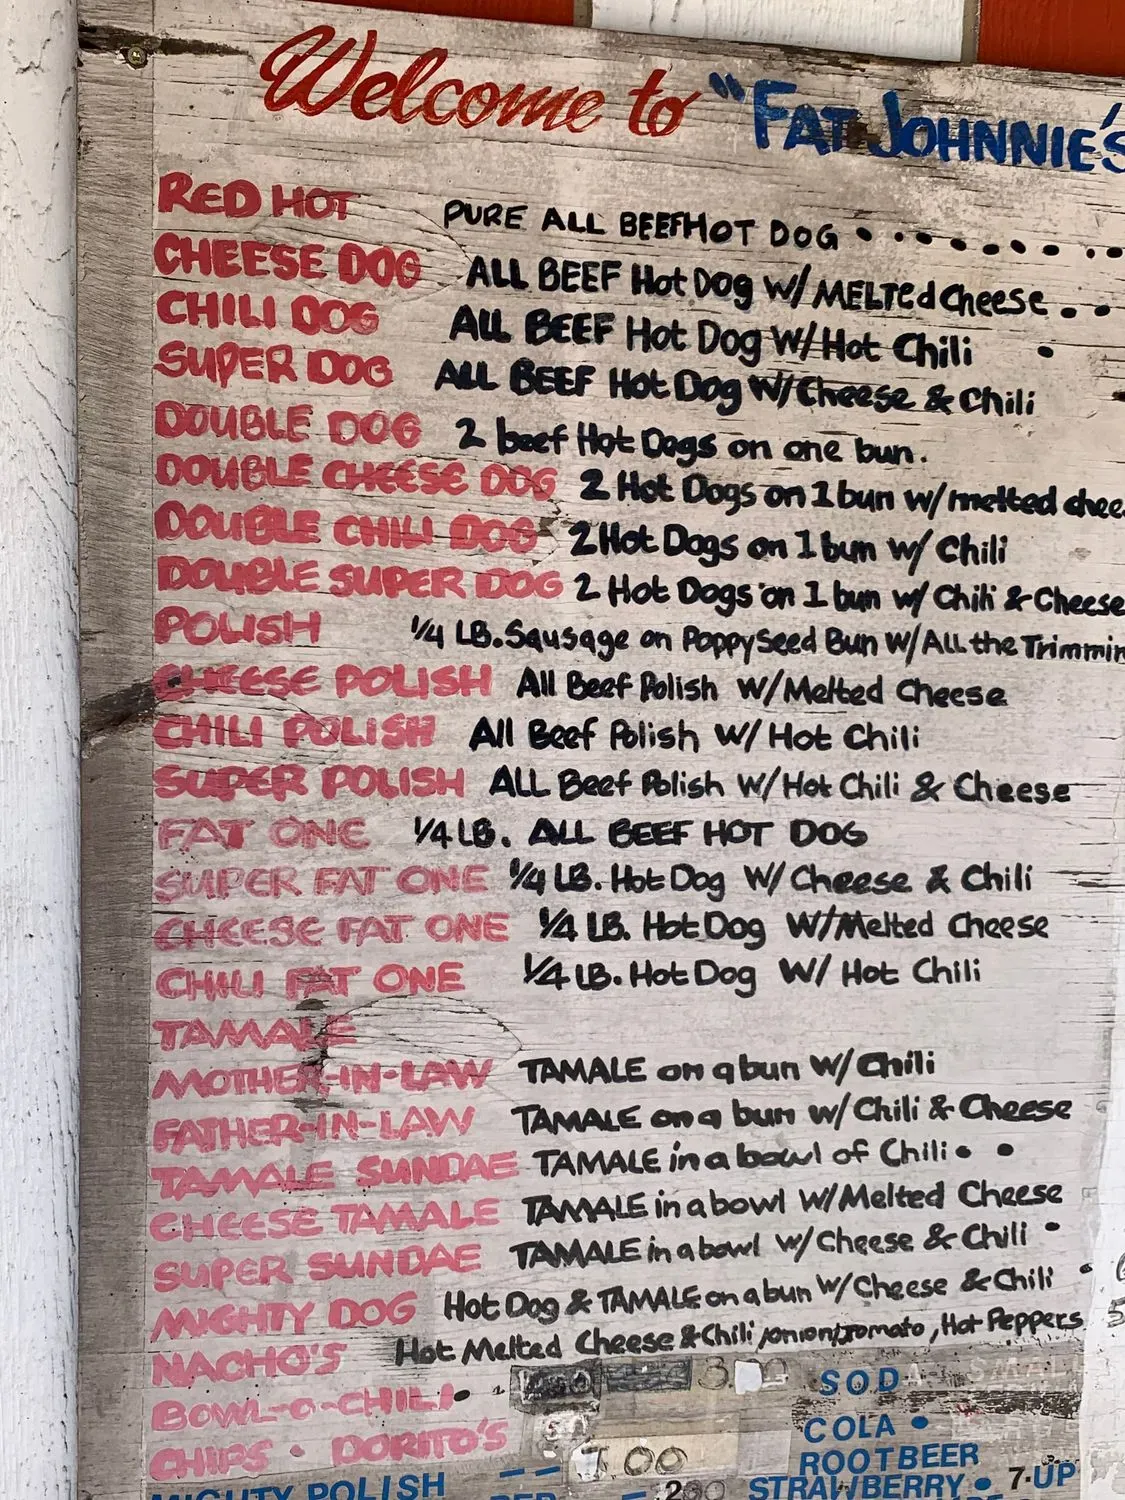 Welcome to "FAT JOHNNIE'S
RED HOT PURE ALL BEEF HOT DOG
CHEESE DOG ALL BEEF Hot Dog W/ MELTEd Cheese
CHILI DOG ALL BEEF Hot Dog W/ Hot Chili
SUPER DOG ALL BEEF Hot Dog W/ Cheese & Chili
DOUBLE DOG 2 beef Hot Dogs on one bun.
DOUBLE CHEESE DOG 2 Hot Dogs on 1 bun w/ melted chee
DOUBLE CHILI DOG 2 Hot Dogs on 1 bun w/ Chili
DOUBLE SUPER DOG 2 Hot Dogs on 1 bun w/ Chili & Cheese
POLISH 1/4 LB. Sausage on PoppySeed Bun W/ ALL the Trimmin
CHEESE POLISH All Beef Polish W/ Melted Cheese
CHILI POLISH All Beef Polish W/ Hot Chili
SUPER POLISH ALL Beef Polish W/ Hot Chili & Cheese
FAT ONE 1/4 LB. ALL BEEF HOT DOG
SUPER FAT ONE 1/4 LB. Hot Dog W/ Cheese & Chili
CHEESE FAT ONE 1/4 LB. Hot Dog W/ Melted Cheese
CHILI FAT ONE 1/4 LB. Hot Dog W/ Hot Chili
TAMALE
MOTHER-IN-LAW TAMALE on a bun W/ Chili
FATHER-IN-LAW TAMALE on a bun w/ Chili & Cheese
TAMALE SUNDAE TAMALE in a bowl of Chili
CHEESE TAMALE TAMALE in a bowl W/ Melted Cheese
SUPER SUNDAE TAMALE in a bowl w/ Cheese & Chili
MIGHTY DOG Hot Dog & TAMALE on a bun W/ Cheese & Chili
NACHO'S Hot Melted Cheese & Chili, onion, tomato, Hot Peppers
BOWL-O-CHILI
SODA SMALL
CHIPS • DORITO'S
COLA •
ROOTBEER
MIGHTY POLISH
STRAWBERRY • 7-UP